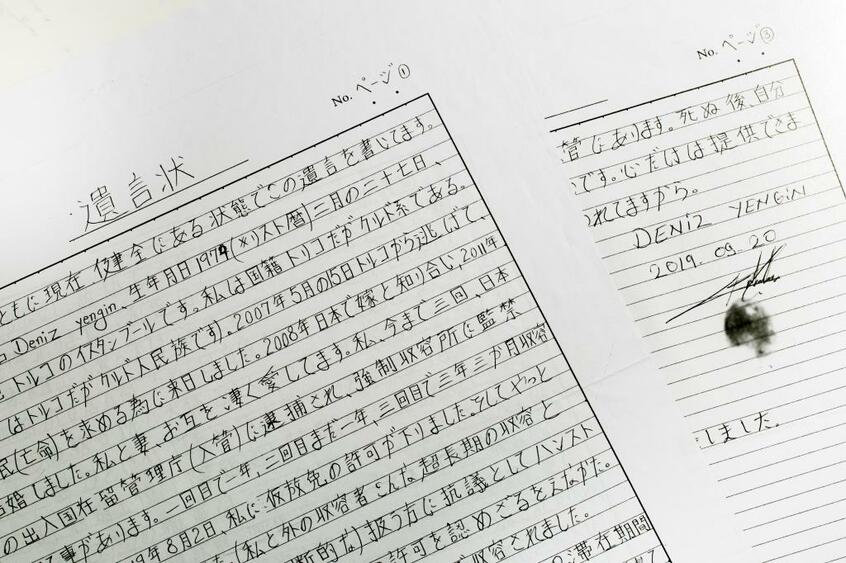 No. ページ①
遺言状
ともに現在、健全にある状態でこの遺言を書いてます。
Deniz yengin、生年月日1979(メリスト暦)二月の二十七日、
トルコのイスタンブールです。私は国籍トリコだがクルド系である。
はトルコだがクルド人民族です)。2007年5月の15日トルコから逃げて、
民(亡命)を求める為に来日しました。2008年日本で嫁と知り合い、2011年
結婚しました。私と妻、お互を凄く愛してます。私、今まで三回、日本
の出入国在留管理庁(入管)に逮捕され、強制収容所に監禁
事があります。一回目で一年、二回目まだ一年、三回目で三年三か月収容
19年8月2日、私に仮放免の許可が下りました。そしてやっと
(私と外の収容者こんな超長期の収容と
断的な)扱う方に抗議としてハンスト
許可を認めざるをえなかた。
収容されました。
滞在期間
No. ページ③
管にあります。死ぬ後、自分
です。心だけは提供できま
れてますから。
DENiZ YENGiN
2019.09.20
しました。